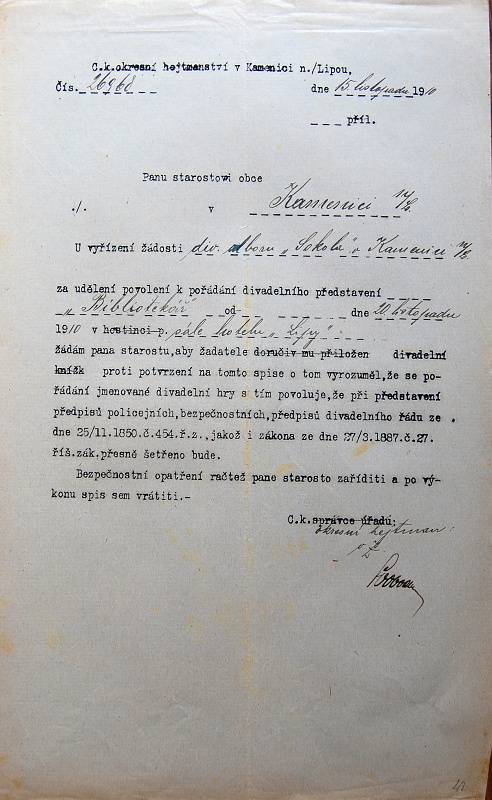 C.k.okresní hejtmanství v Kamenici n./Lipou,
Čís. 26968 dne 15. listopadu 1910
příl.
Panu starostovi obce
./. v Kamenici n/L.
U vyřízení žádosti div. odboru „Sokola" v Kamenici n/L.
za udělení povolení k pořádání divadelního představení
„Bibliotékář" od dne 20. listopadu
1910 v hostinci p. sále hotelu „Lípy"
žádám pana starostu,aby žadatele doručiv mu přiložen divadelní
knížk proti potvrzení na tomto spise o tom vyrozuměl,že se po-
řádání jmenované divadelní hry s tím povoluje,že při představení
předpisů policejních,bezpečnostních,předpisů divadelního řádu ze
dne 25/11.1850.č.454.ř.z.,jakož i zákona ze dne 27/3.1887.č.27.
říš.zák.přesně šetřeno bude.
Bezpečnostní opatření račtež pane starosto zaříditi a po vý-
konu spis sem vrátiti.-
C.k.správce úřadu:
okresní hejtman:
42